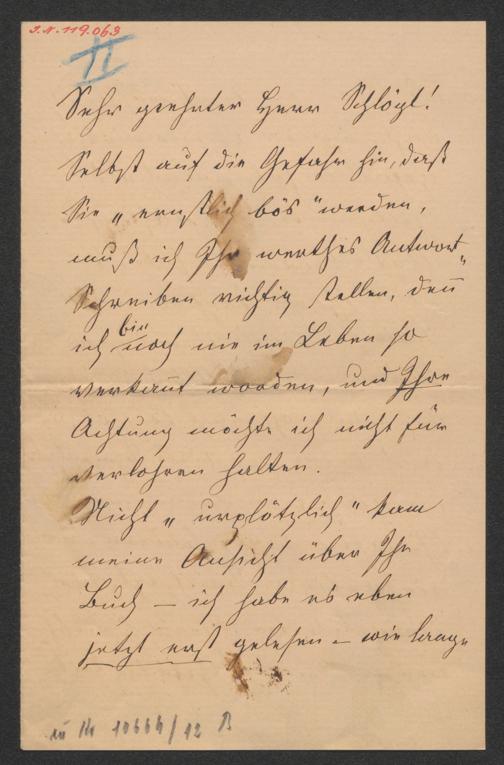 J.N. 119.063
II
Sehr geehrter Herr Schlögl!
Selbst auf die Gefahr hin, daß
Sie „ernstlich bös" werden,
muß ich Ihr werthes Antwort-
Schreiben richtig stellen, den̄
ich bin noch nie im Leben so
verkan̄t worden, und Ihre
Achtung möchte ich nicht für
verlohren halten.
Nicht „urplötzlich" kam
meine Ansicht über Ihr
Buch – ich habe es eben
jetzt erst gelesen – wie lange
10666/12